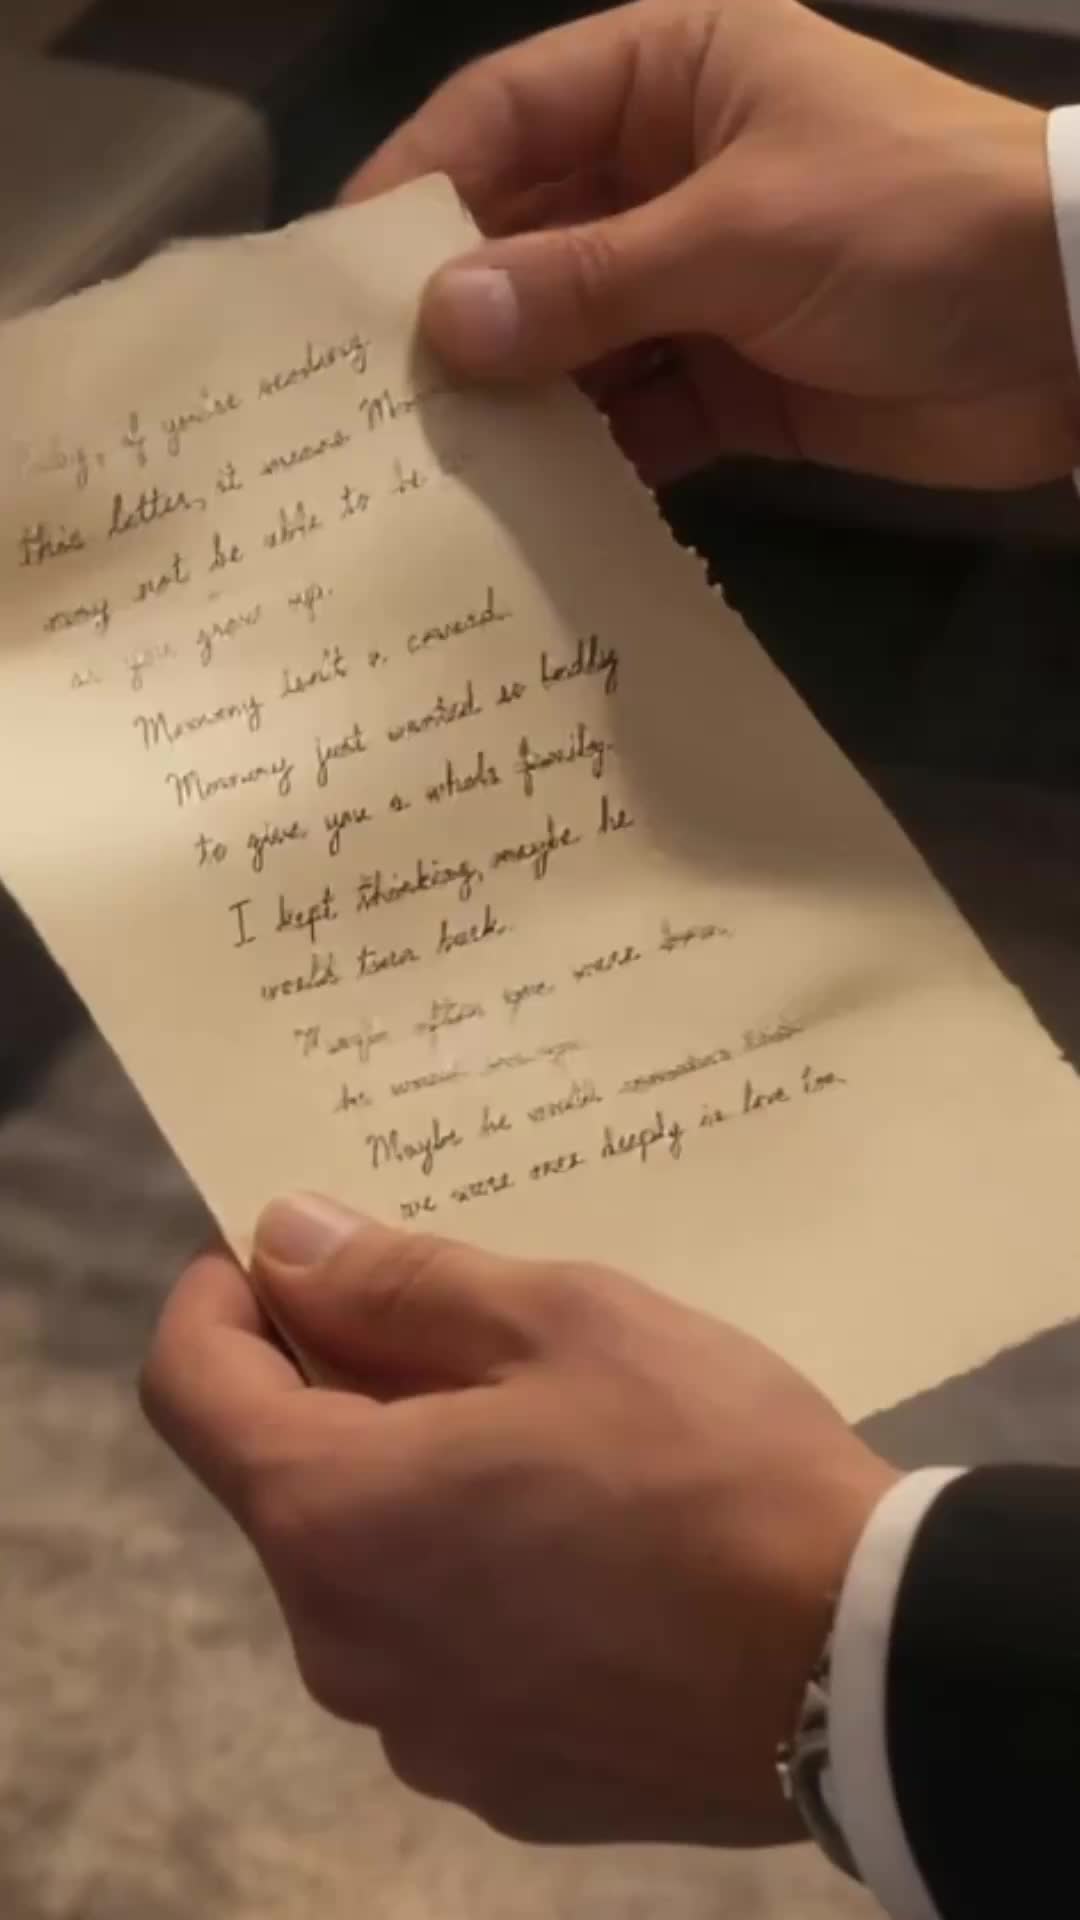 Baby, if you're reading
this letter, it means
may not be able to be
as you grow up.
Mommy isn't a coward.
Mommy just wanted so badly
to give you a whole family.
I kept thinking, maybe he
would turn back.
Maybe after you were born,
he would
Maybe he would
we were once deeply in love too.